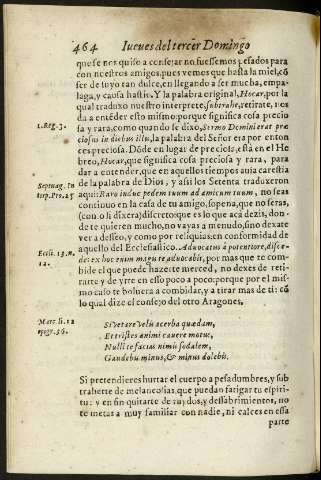 464 Iueues del tercer Domingo
que se nos quiso aconsejar no fuessemos pesados para
con nuestros amigos, pues vemos que hasta la miel, cõ
ser de suyo tan dulce, en llegando a ser mucha, empa-
laga, y causa hastio. Y la palabra original, Hocar, por la
qual traduxo nuestro interprete, subtrahe, retirate, nos
da a entẽder esto mismo: porque significa cosa precio
sa y rara, como quando se dixo, Sermo Domini erat pre
1. Reg. 3.
ciosus in diebus illis, la palabra del Señor era por enton
ces preciosa. Dõde en lugar de preciosa, està en el He
breo, Hocar, que significa cosa preciosa y rara, para
dar a entender, que en aquellos tiempos auia carestia
de la palabra de Dios, y assi los Setenta traduxeron
Septuag. In
terp. Pro. 25
aqui: Raro induc pedem tuum ad amicum tuum, no seas
continuo en la casa de tu amigo, sopena, que no seras,
(con o li dixera) discreto: que es lo que acà dezis, don-
de te quieren mucho, no vayas a menudo, sino dexate
ver a desseo, y como por reliquias: en conformidad de
aquello del Ecclesiastico. Aduocatus à potentiore, disce-
Eccli. 13. n.
12.
de: ex hoc enim magis te aduocabit, por mas que te com
bide el que puede hazerte merced, no dexes de reti-
rarte y de yrte en esso poco a poco: porque por el mis
mo caso te boluera a combidar, y a tirar mas de ti: cõ
lo qual dize el consejo del otro Aragones.
Mart. li. 12
epigr. 36.
Si vetare velis acerba quædam,
Et tristes animi cauere motus,
Nulli te facias nimis sodalem,
Gaudebis minus, & minus dolebis.
Si pretendieres hurtar el cuerpo a pesadumbres, y sub
traherte de melancolias, que puedan fatigar tu espiri-
tu: y en fin quitarte de ruydos, y dessabrimientos, no
te metas a muy familiar con nadie, ni calces en essa
parte